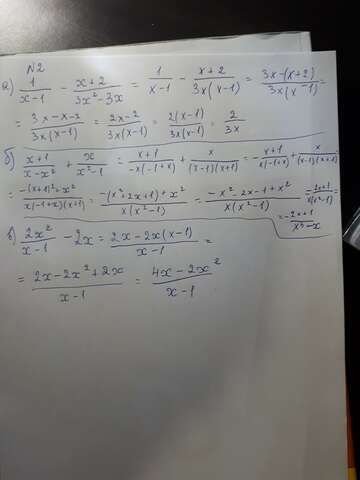 N2
а) 1/(x-1) - (x+2)/(3x²-3x) = 1/(x-1) - (x+2)/(3x(x-1)) = (3x-(x+2))/(3x(x-1)) =
= (3x-x-2)/(3x(x-1)) = (2x-2)/(3x(x-1)) = 2(x-1)/(3x(x-1)) = 2/(3x)
б) (x+1)/(x-x²) + x/(x²-1) = (x+1)/(-x(-1+x)) + x/((x-1)(x+1)) = -(x+1)/(x(-1+x)) + x/((x-1)(x+1))
= (-(x+1)²+x²)/(x(-1+x)(x+1)) = (-(x²+2x+1)+x²)/(x(x²-1)) = (-x²-2x-1+x²)/(x(x²-1))
= -2x+1/(x³-x)
в) 2x²/(x-1) - 2x = (2x-2x(x-1))/(x-1) =
= (2x-2x²+2x)/(x-1) = (4x-2x²)/(x-1)